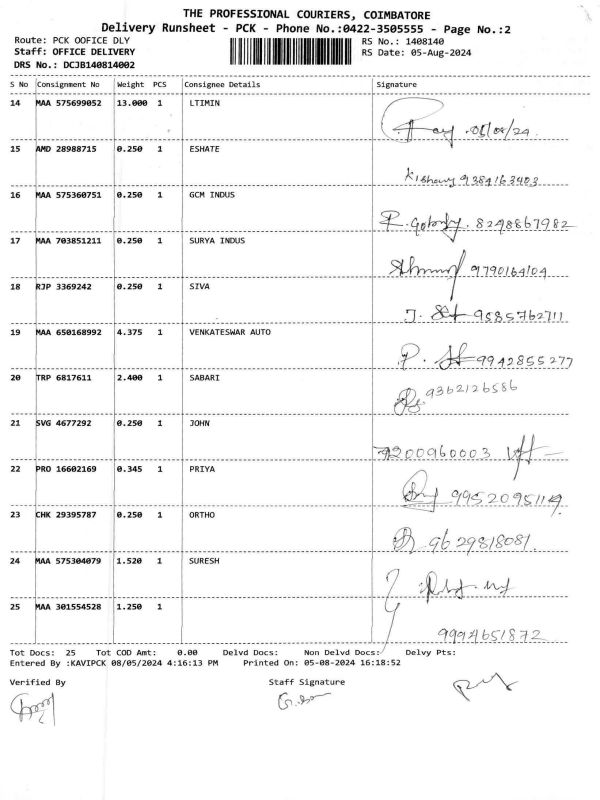 THE PROFESSIONAL COURIERS, COIMBATORE
Delivery Runsheet - PCK - Phone No.:0422-3505555 - Page No.:2
Route: PCK OOFICE DLY RS No.: 1408140
Staff: OFFICE DELIVERY RS Date: 05-Aug-2024
DRS No.: DCJB140814002
S No Consignment No Weight PCS Consignee Details Signature
14 MAA 575699052 13.000 1 LTIMIN
05/08/24
15 AMD 28988715 0.250 1 ESHATE
Kishany 9384163403
16 MAA 575360751 0.250 1 GCM INDUS
8248867982
17 MAA 703851211 0.250 1 SURYA INDUS
9790164104
18 RJP 3369242 0.250 1 SIVA
9585762711
19 MAA 650168992 4.375 1 VENKATESWAR AUTO
P. 9942855277
20 TRP 6817611 2.400 1 SABARI
9362126586
21 SVG 4677292 0.250 1 JOHN
9200960003
22 PRO 16602169 0.345 1 PRIYA
9952095114
23 CHK 29395787 0.250 1 ORTHO
9629818081.
24 MAA 575304079 1.520 1 SURESH
25 MAA 301554528 1.250 1
9994651872
Tot Docs: 25 Tot COD Amt: 0.00 Delvd Docs: Non Delvd Docs: Delvy Pts:
Entered By :KAVIPCK 08/05/2024 4:16:13 PM Printed On: 05-08-2024 16:18:52
Verified By Staff Signature